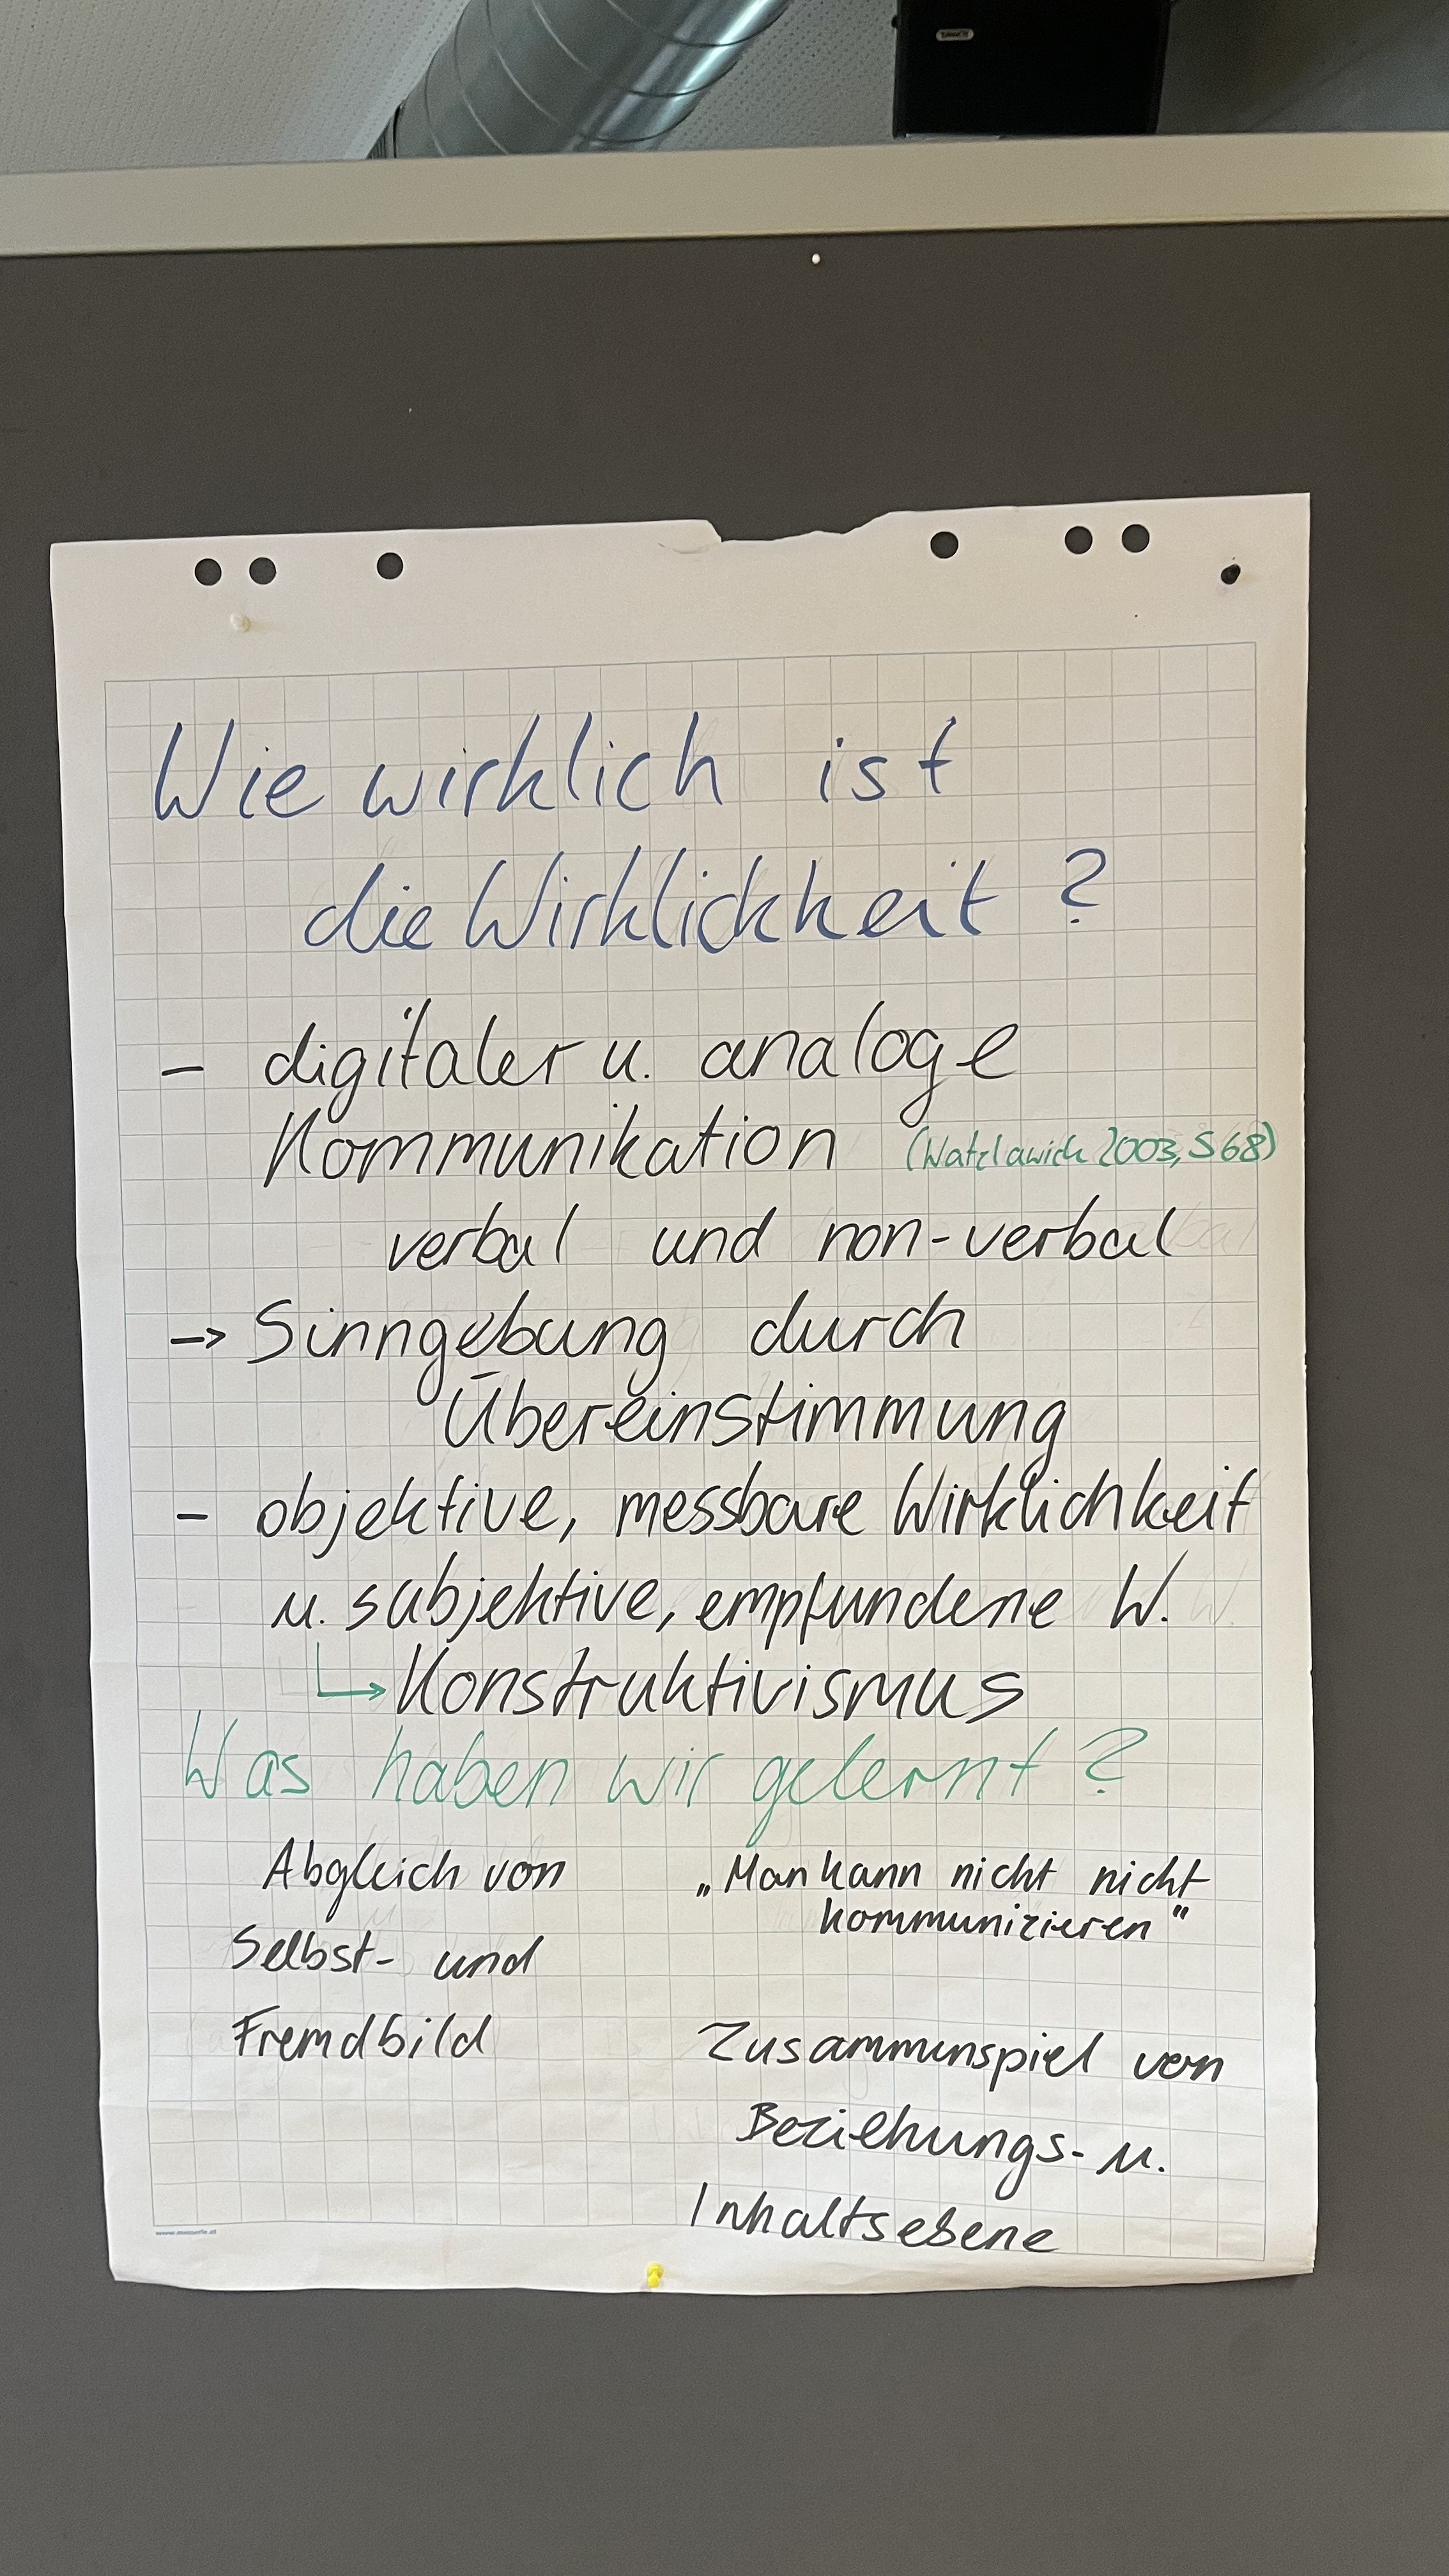 Wie wirklich ist
die Wirklichkeit ?
- digitaler u. analoge
Kommunikation (Watzlawick 2003, S 68)
verbal und non-verbal
→ Sinngebung durch
Übereinstimmung
- objektive, messbare Wirklichkeit
u. subjektive, empfundene W.
↳ Konstruktivismus
Was haben wir gelernt ?
Abgleich von
Selbst- und
Fremdbild
„Man kann nicht nicht
kommunizieren"
Zusammenspiel von
Beziehungs- u.
Inhaltsebene